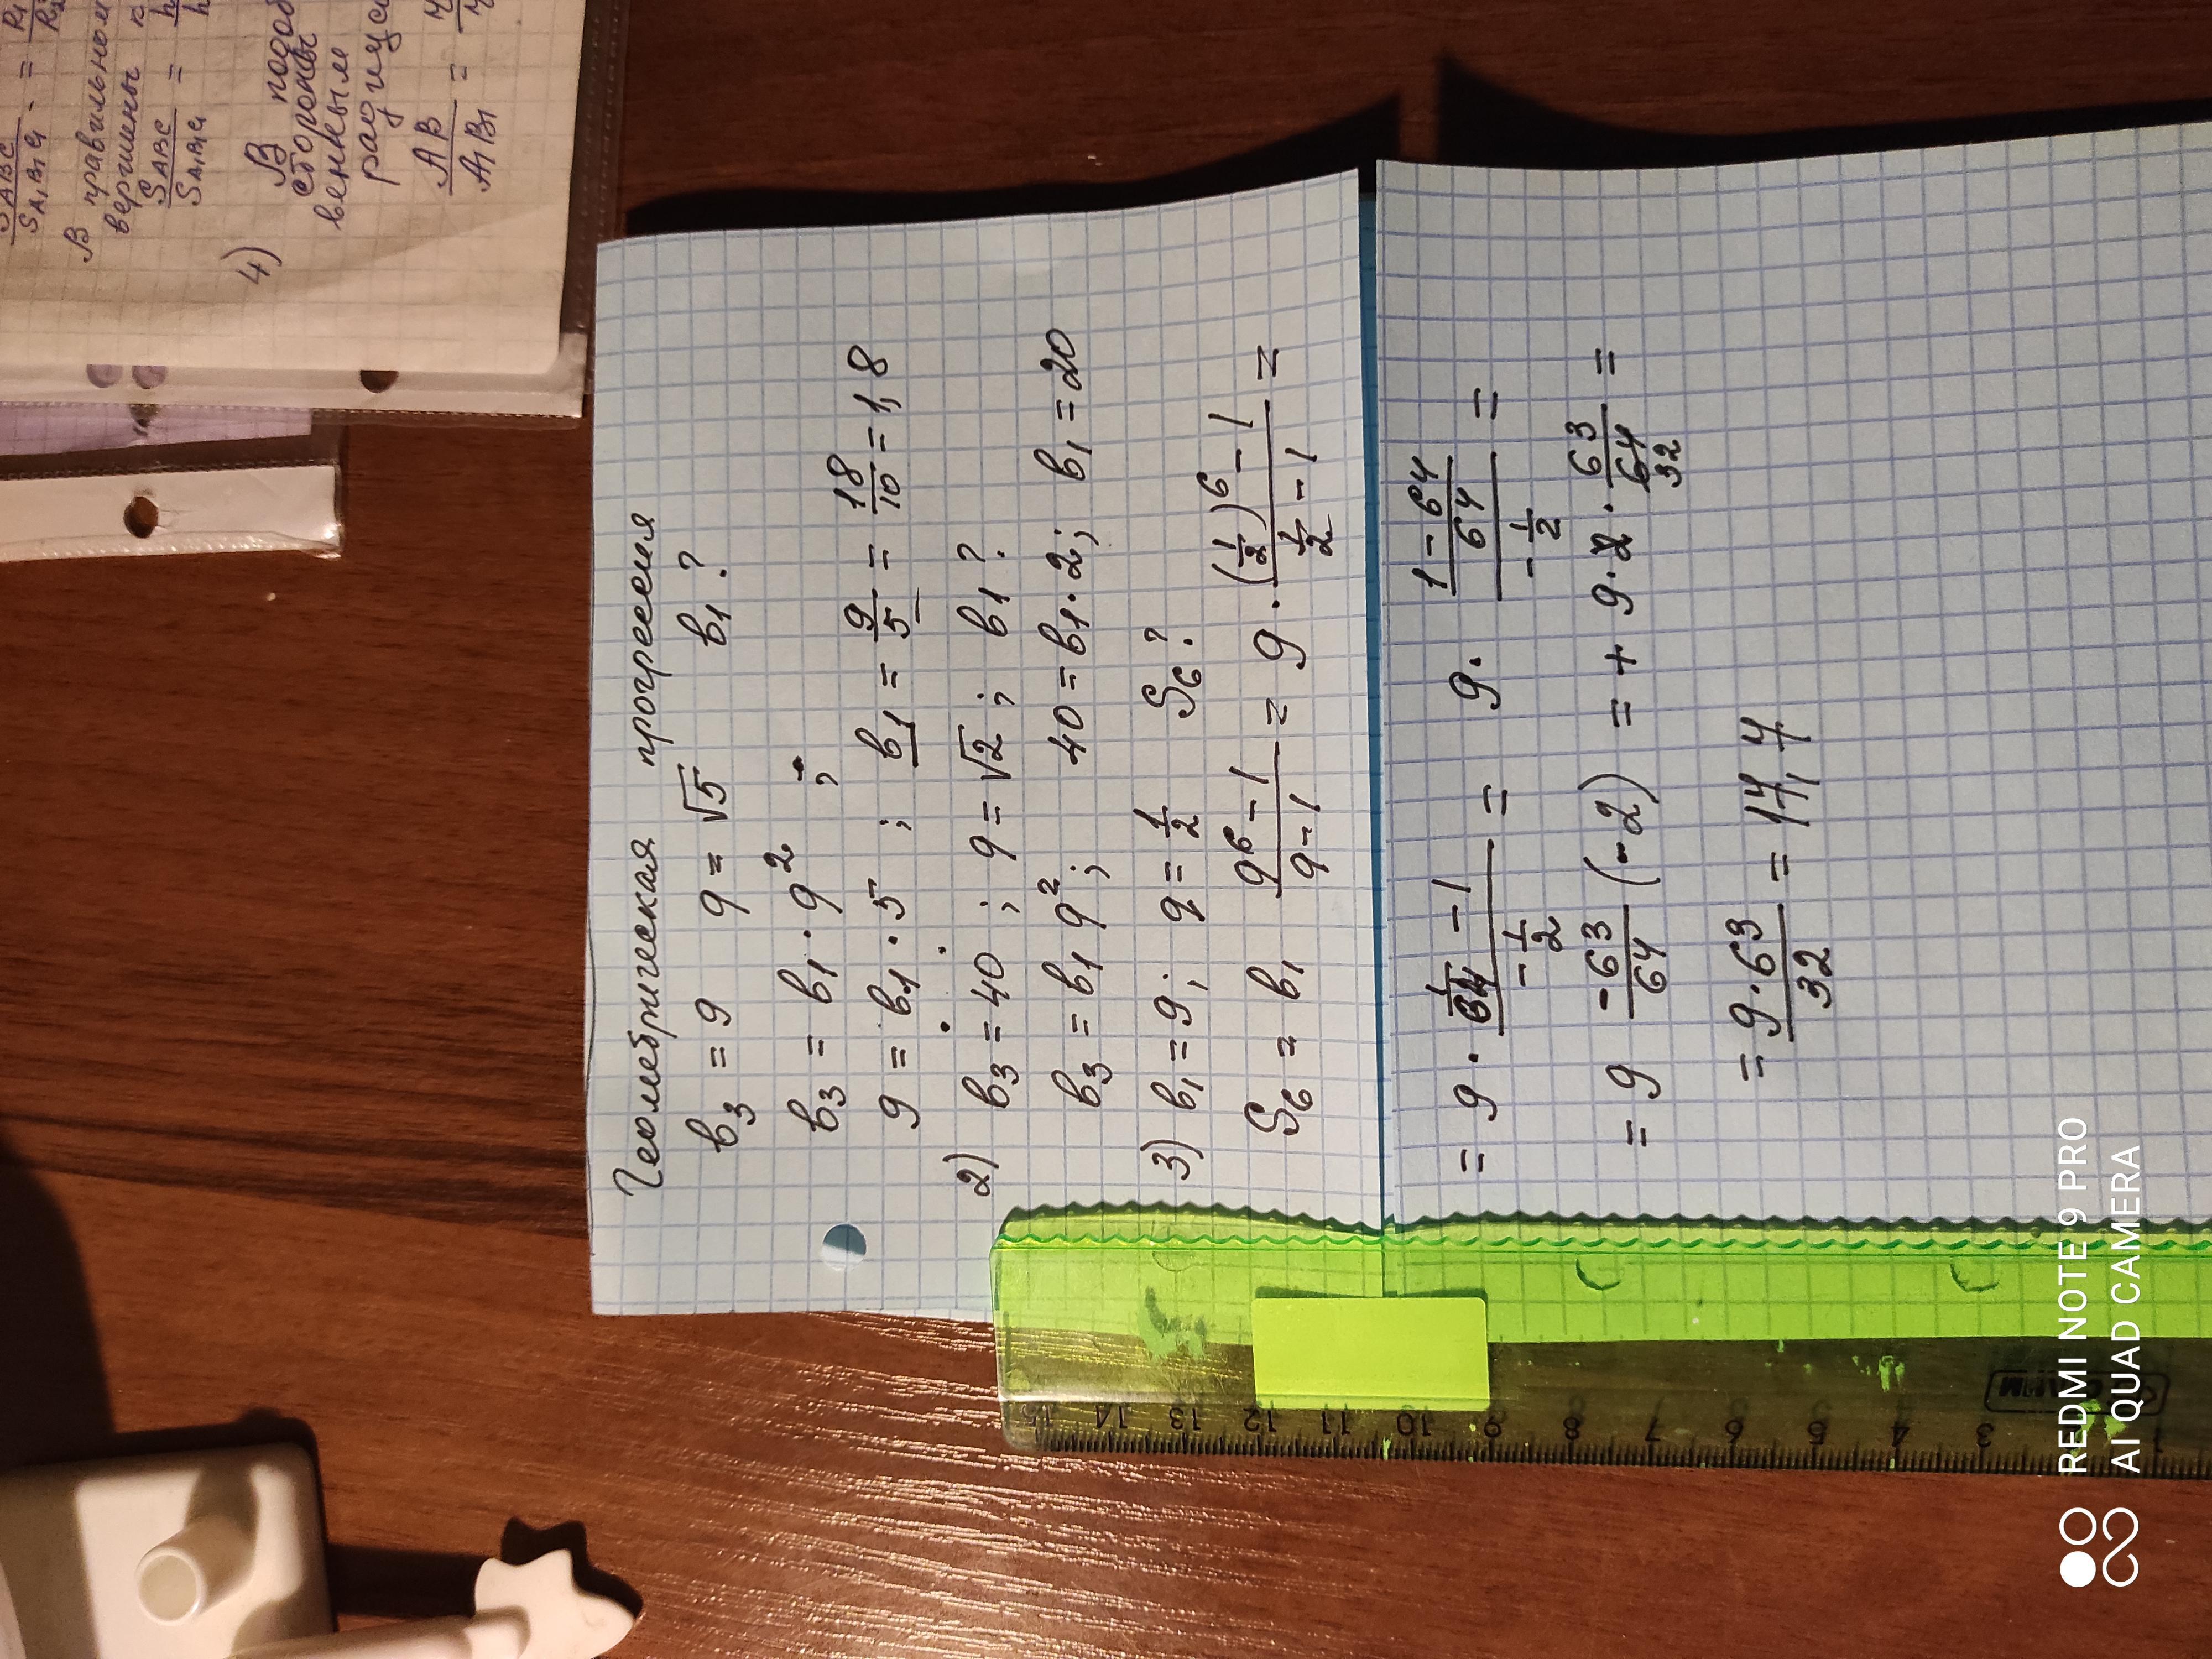 SABC = R1
SA1B1C1 R2
В правильном
вершины к
SABC = h
SA1B1C1 h
4) В подоб
стороны
венным
радиуса
AB = r
A1B1 r
Геометрическая прогрессия
b3 = 9 q = √5 b1 ?
b3 = b1 · q² ;
9 = b1 · 5 ; b1 = 9/5 = 18/10 = 1,8
2) b3 = 40 ; q = √2 ; b1 ?
b3 = b1 q² ; 40 = b1 · 2 ; b1 = 20
3) b1 = 9 ; q = 1/2 S6 ?
S6 = b1 (q⁶ - 1)/(q - 1) = 9 · ((1/2)⁶ - 1)/(1/2 - 1) =
= 9 · (1/64 - 1)/(- 1/2) = 9 · ((1 - 64)/64)/(- 1/2) =
= 9 (-63)/64 (-2) = + 9 · 2 · 63/64 32 =
= (9 · 63)/32 = 17,7
15 14 13 12 11 10 9 8 7 6 5 4 3 2 1
REDMI NOTE 9 PRO
AI QUAD CAMERA